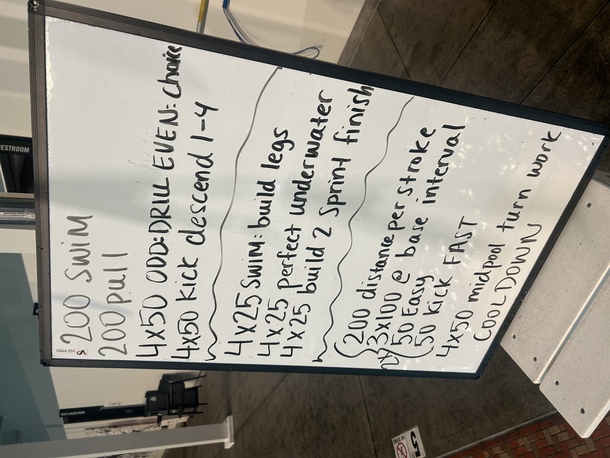 200 SWIM
200 pull
4x50 ODD:DRILL EVEN: choice
4x50 kick descend 1-4
4x25 SWIM: build legs
4x25 perfect underwater
4x25 build 2 sprint finish
200 distance per stroke
3x100 @ base interval
50 Easy
50 kick FAST
4x50 midpool turn work
COOLDOWN
ESTROOM
5